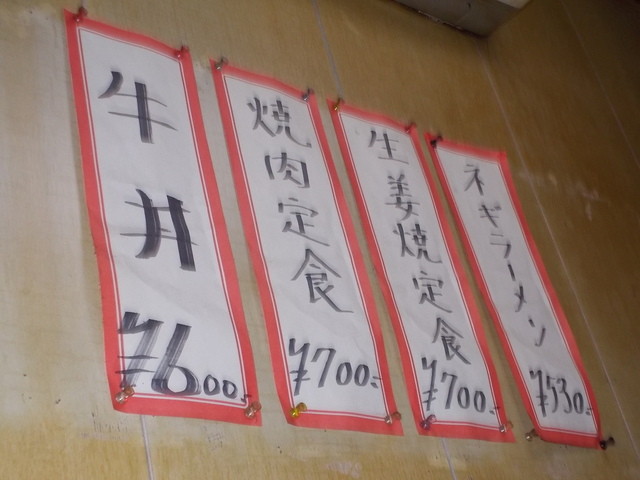 牛丼
¥600-
焼肉定食
¥700-
生姜焼定食
¥700-
ネギラーメン
¥530-